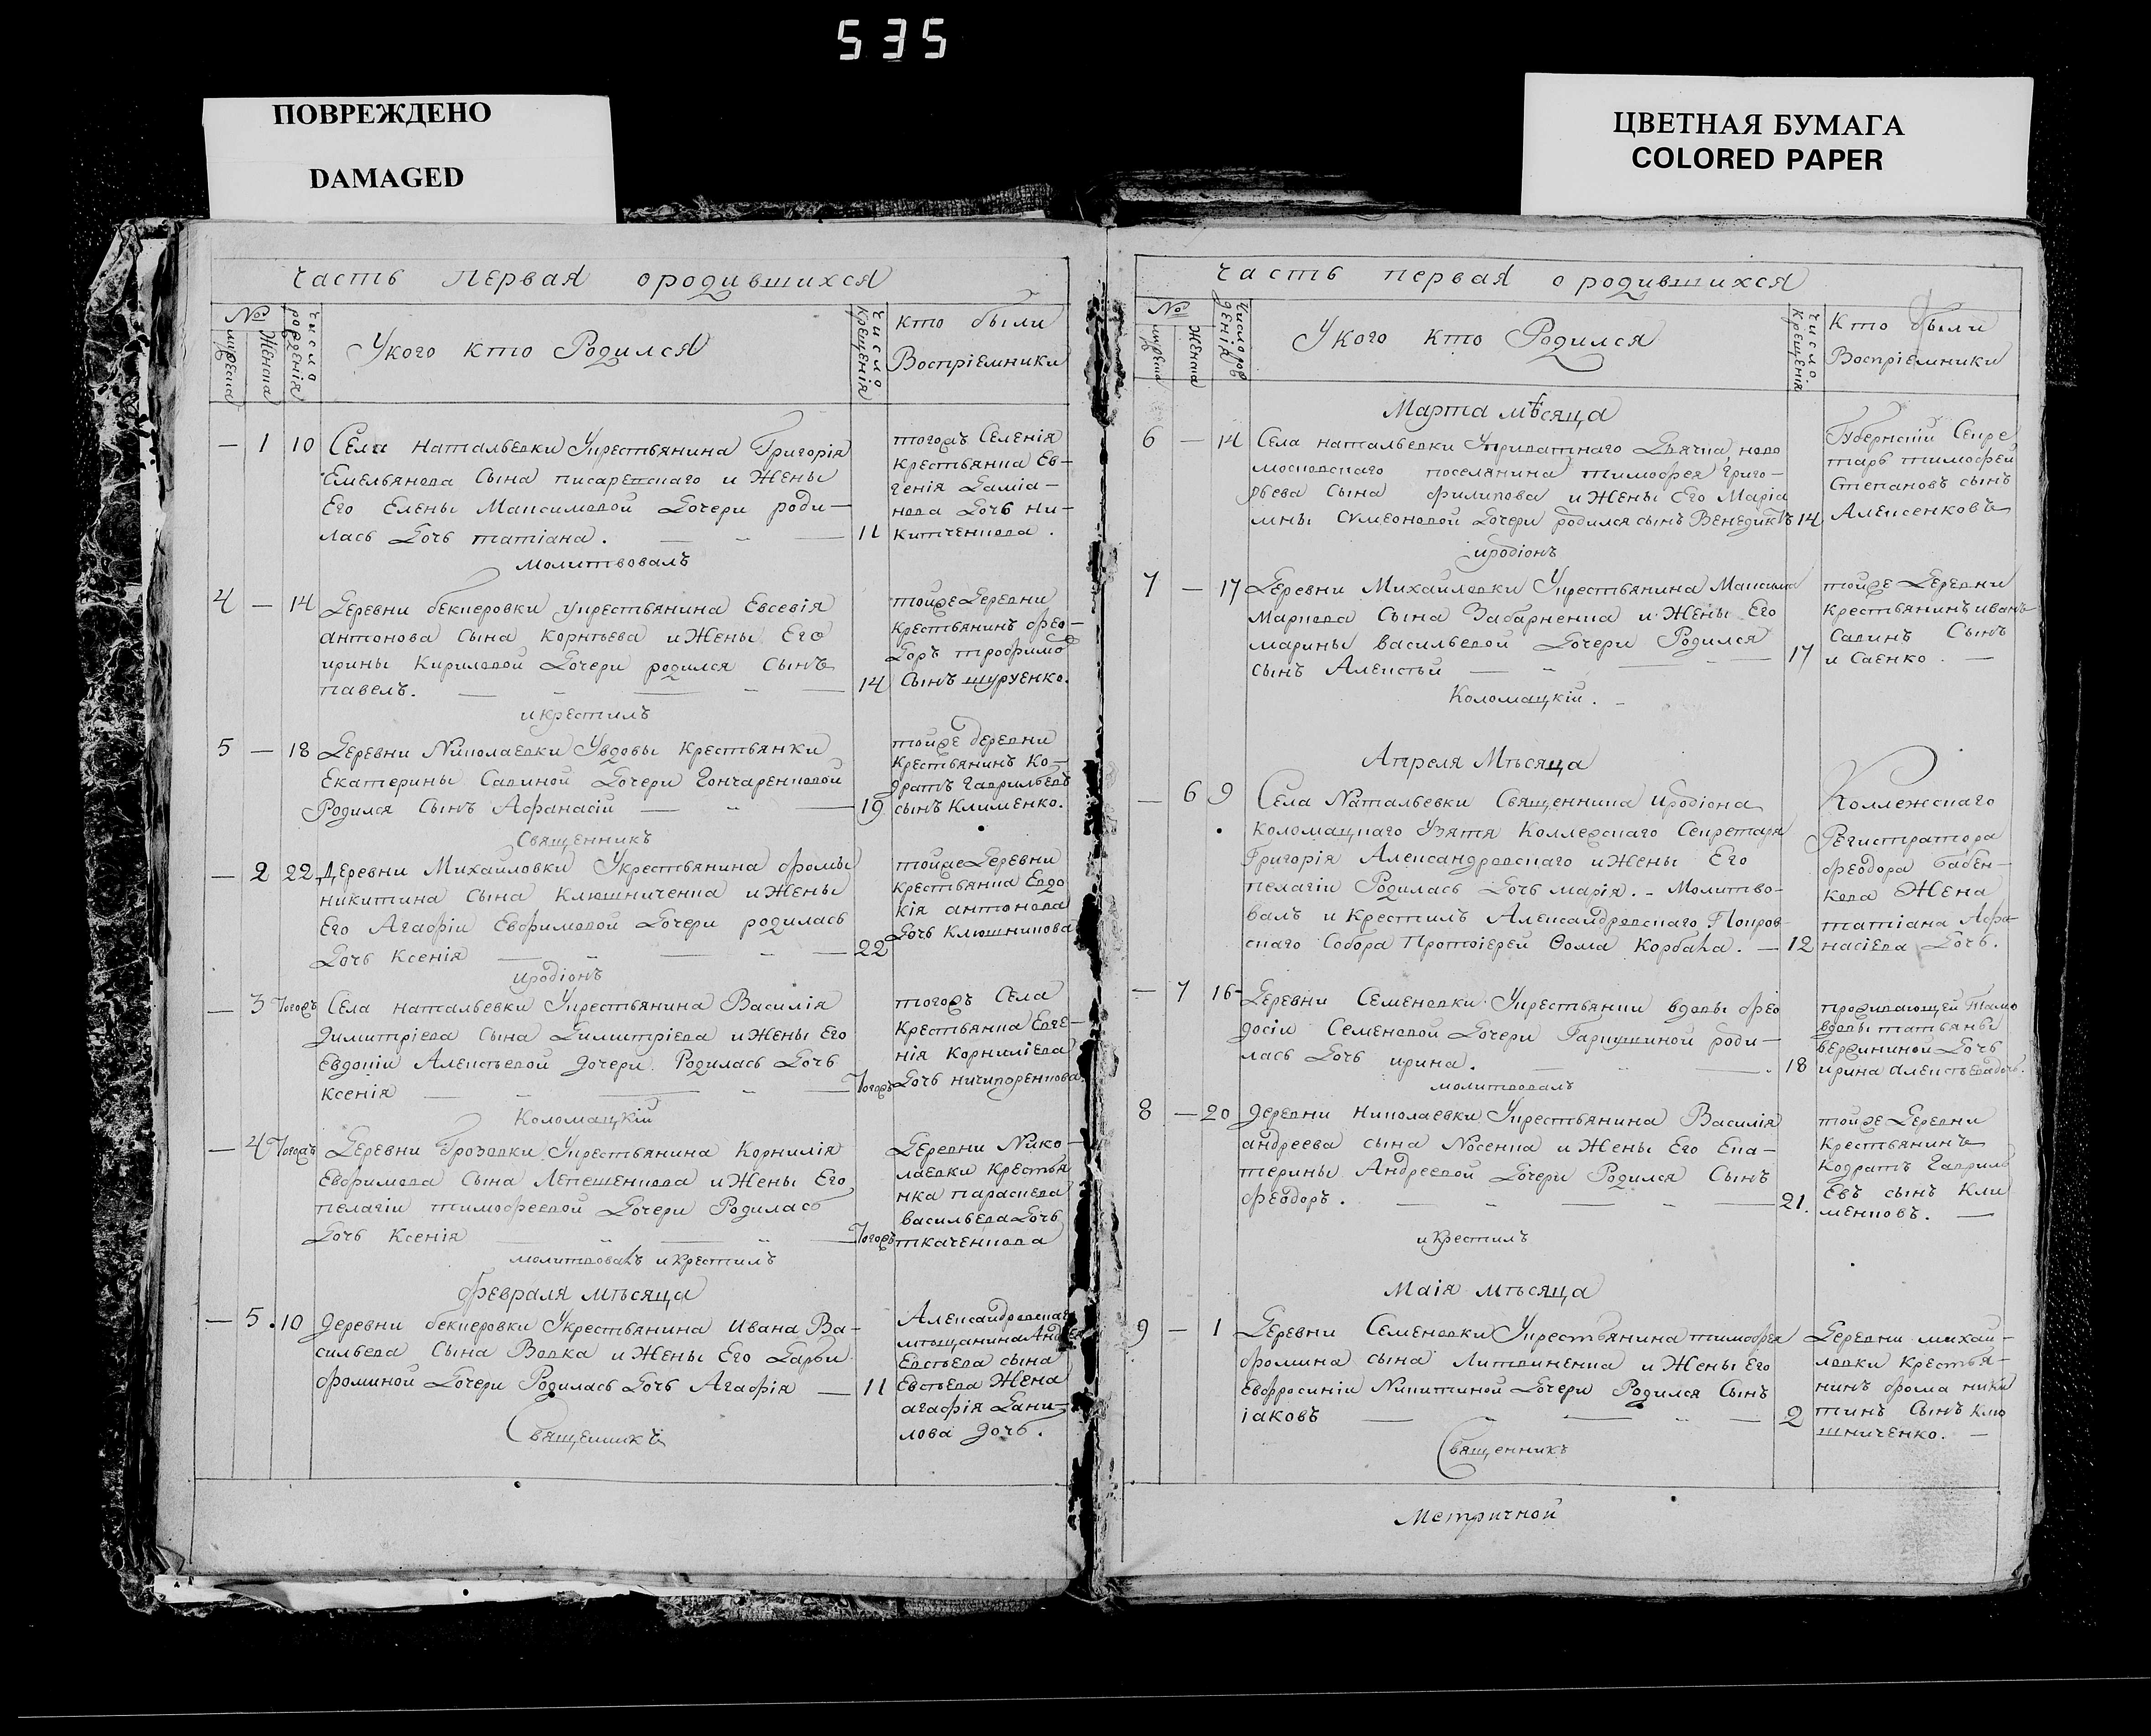 535
ПОВРЕЖДЕНО
DAMAGED
ЦВЕТНАЯ БУМАГА
COLORED PAPER
Часть первая о родившихся
№
мужеска
Женска
Число рождения
У кого кто Родился
Число Крещенія
Кто были
Воспріемники
— 1 10 Села Натальевки У крестьянина Григорія
Емельянова Сына писаревскаго и Жены
Его Елены Максимовой Дочери роди—
лась Дочь татіана. 11
тогожъ Селенія
Крестьянка Ев—
генія Даміа—
нова Дочь Ни—
китченкова.
молитвовалъ
4 — 14 Деревни беккеровки у крестьянина Евсевія
антонова Сына Корнѣева и Жены Его
ирины Кириловой Дочери родился Сынъ
павелъ. 14
тойже Деревни
Крестьянинъ Фео—
доръ трофимо
Сынъ шуруенко.
и крестилъ
5 — 18 Деревни Николаевки У вдовы крестьянки
Екатерины Савиной Дочери Гончаренковой
Родился Сынъ Афанасій 19
тойже деревни
Крестьянинъ Ко—
дратъ Гаврильевъ
сынъ Клименко.
Священникъ
— 2 22 Деревни Михайловки У крестьянина фомы
никитина Сына Клюшниченка и Жены
Его Агафіи Евфимовой Дочери родилась
Дочь Ксенія 22
тойже Деревни
Крестьянка Евдо
кія антонова
Дочь Клюшникова
иродіонъ
— 3 Тогожъ Села натальевки У крестьянина Василія
димитріева сына Димитріева и Жены Его
Евдокіи Алексѣевой дочери Родилась Дочь
Ксенія Тогожъ
тогожъ Села
Крестьянка Евге—
нія Корниліева
Дочь ничипоренкова.
Коломацкій
— 4 Тогожъ Деревни Грозовки У крестьянина Корнилія
Евфимова Сына Лепешенкова и Жены Его
пелагіи тимофеевой Дочери Родилась
Дочь Ксенія Тогожъ
Деревни Нико—
лаевки Крестья
нка параскева
васильева Дочь
ткаченкова
молитвовалъ и крестилъ
Февраля мѣсяца
— 5 10 деревни беккеровки У крестьянина ивана Ва—
сильева Сына Вовка и Жены Его Дарьи
фоминой Дочери Родилась Дочь Агафія — 11
Александровскаго
мѣщанина
Евсѣева сына
Евсѣева Жена
агафія Дани—
лова дочь.
Священникъ
Часть первая о родившихся
№
мужеска
Женска
Число рожденія
У кого кто Родился
Число Крещенія
Кто были
Воспріемники
Марта мѣсяца
6 — 14 Села натальевки У приватнаго Дьячка, ново
московскаго поселянина тимофея Григо—
рьева Сына филипова и Жены Его Маріа
мны Сумеоновой Дочери родился сынъ Венедиктъ 14
Губернскій Секре
тарь тимофей
Степановъ сынъ
Алексенковъ
иродіонъ
7 — 17 Деревни Михайловки У крестьянина Максима
Маркова Сына Забарненка и Жены Его
марины васильевой Дочери Родился
сынъ Алексѣй 17
тойже Деревни
крестьянинъ иванъ
Савинъ Сынъ
и Саенко. —
Коломацкій.
Апреля Мѣсяца
— 6 9 Села Натальевки Священника иродіона
Коломацкаго У зятя Коллежскаго Секретаря
Григорія Александровскаго и Жены Его
пелагіи Родилась Дочь марія. — Молитво—
валъ и Крестилъ Александровскаго Покров
скаго Собора Протоіерей Фома Корбака. — 12
Коллежскаго
Регистратора
феодора бабен—
кова Жена
татіана Афа—
насіева Дочь.
— 7 16 Деревни Семеновки У крестьянки вдовы фео
досіи Семеновой Дочери Гаркушиной роди—
лась Дочь ирина. 18
проживающей тамо
вдовы татьяны
Дочь
ирина алексѣева
молитвовалъ
8 — 20 деревни николаевки У крестьянина Василія
андреева сына Носенка и Жены Его Ека—
терины Андреевой Дочери Родился Сынъ
феодоръ. 21.
тойже Деревни
Крестьянинъ
Кодратъ Гавриль
Евъ сынъ Кли
менковъ. —
и крестилъ
Маія мѣсяца
9 — 1 Деревни Семеновки У крестьянина тимофея
фомина сына Литвиненка и Жены Его
Евфросиніи Никитиной Дочери Родился Сынъ
іаковъ 2
Деревни михай—
ловки крестья—
нинъ фома ники
тинъ Сынъ Клю
шниченко. —
Священникъ
Метричной